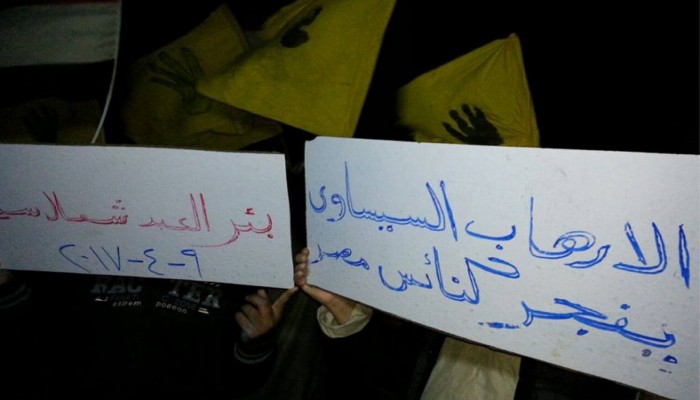 الارهاب السيساوى
يفجر كنائس مصر
بئر العبد شمال سي
٩-٤-٢٠١٧